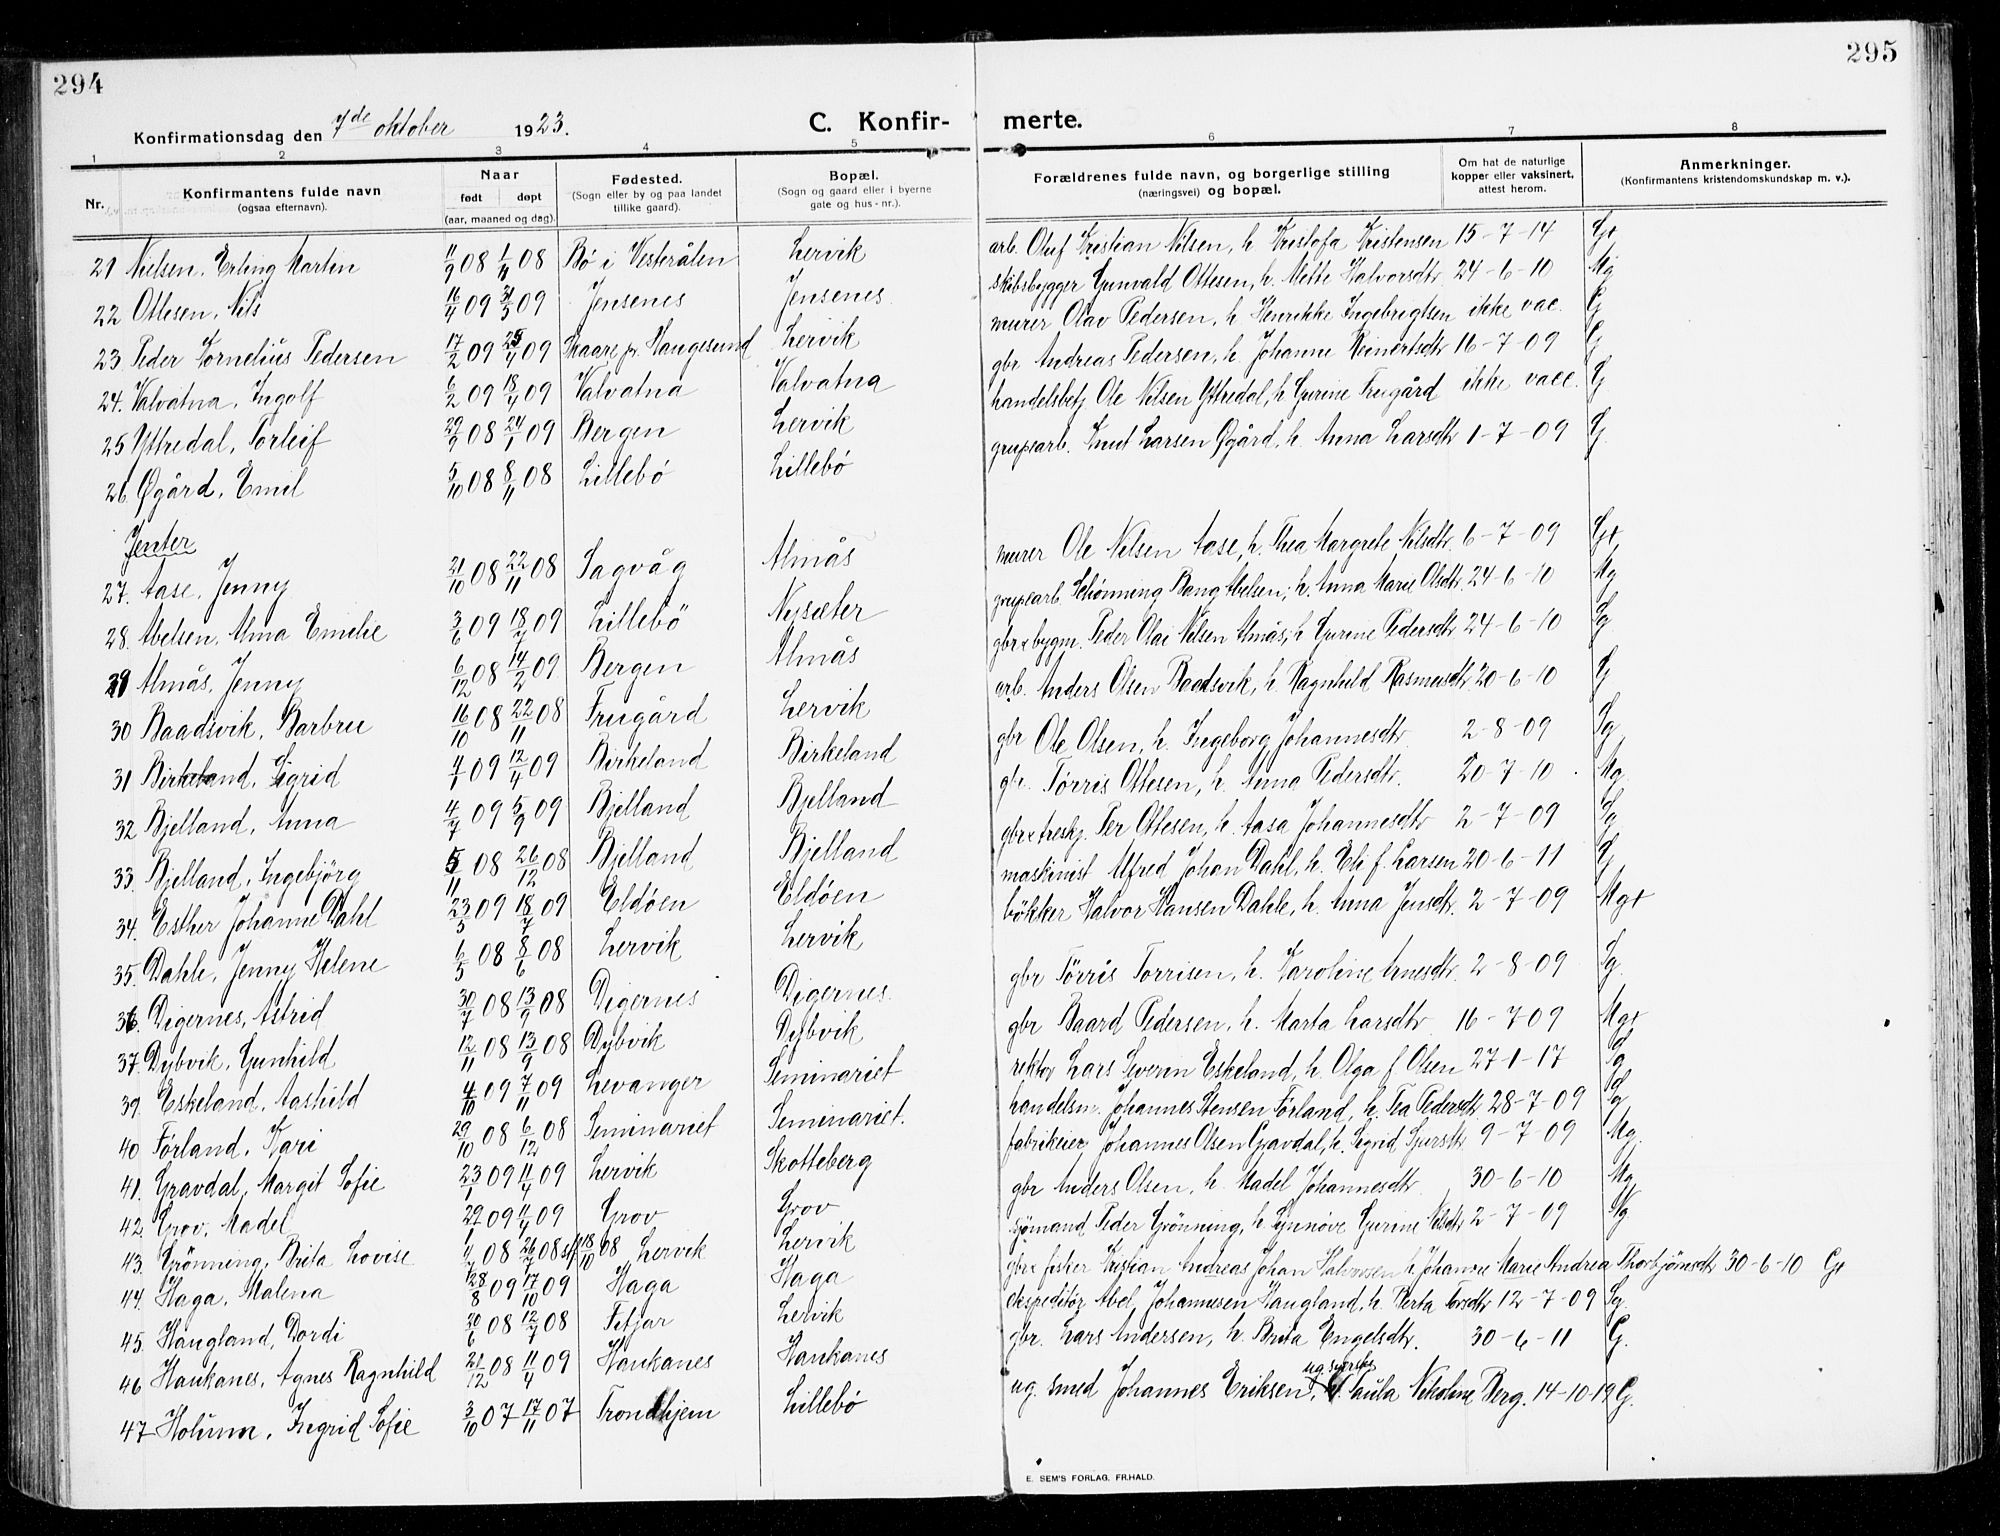 294
295
Konfirmationsdag den 7de oktober 1923.
C. Konfirmerte.
1 2 3 4 5 6 7 8
Nr. Konfirmantens fulde navn (ogsaa efternavn). Naar født døpt (aar, maaned og dag). Fødested. (Sogn eller by og paa landet tillike gaard). Bopæl. (Sogn og gaard eller i byerne gate og hus-nr.). Forældrenes fulde navn, og borgerlige stilling (næringsvei) og bopæl. Om hat de naturlige kopper eller vaksinert, attest herom. Anmerkninger. (Konfirmantens kristendomskundskap m. v.).
21 Nielsen, Erling Martin 11/9 08 1/11 08 Bø i Vesterålen Lervik arb. Oluf Kristian Nilsen, h. Kristofa Kristensen 15-7-14 G+
22 Ottesen, Nils 16/4 09 31/5 09 Jensenes Jensenes skibsbygger Gunvald Ottesen, h. Mette Halvorsdtr 24-6-10 Mg
23 Peder Kornelius Pedersen 17/2 09 25/4 09 Skaare pr. Haugesund Lervik murer Olav Pedersen, h. Henrikke Ingebrigtsen ikke vac. G
24. Valvatna, Ingolf 6/2 09 18/4 09 Valvatna Valvatna gbr Andreas Pedersen, h. Johanne Reinertsdtr 16-7-09 G
25 Yttredal, Torleif 29/9 08 24/1 09 Bergen Lervik handelsbetj Ole Nilsen Yttredal, h Gurine Frugård ikke vacc. G
26. Øgård, Emil 5/10 08 8/11 08 Lillebø Lillebø grupearb. Knut Larsen Øgård, h. Anna Larsdtr 1-7-09 G
Jenter
27. Aase, Jenny 21/10 08 22/11 08 Sagvåg Almås murer Ole Nilsen Aase, h. Thea Margrete Nilsdtr. 6-7-09 G+
28. Abelsen, Alma Emelie 3/6 09 18/7 09 Lillebö Nysæter grupearb. Schönning Bang Abelsen, h. Anna Marie Olsdtr. 24-6-10 Mg
29 Almås, Jenny 6/12 08 14/2 09 Bergen Almås gbr & bygm. Peder Olai Nilsen Almås, h Gurine Pedersdtr 24-6-10 Sg
30 Baadsvik, Barbru 16/10 08 22/11 08 Frugård Lervik arb. Anders Olsen Baadsvik, h. Ragnhild Rasmusdtr 20-6-10 G
31 Birkeland, Sigrid 4/1 09 12/4 09 Birkeland Birkeland gbr Ole Olsen, h. Ingeborg Johannesdtr 2-8-09 Sg
32 Bjelland, Anna 4/7 09 5/9 09 Bjelland Bjelland gbr. Törris Ottesen, h. Anna Pedersdtr. 20-7-10 Mg
33. Bjelland, Ingebjörg 5/11 08 26/12 08 Bjelland Bjelland gbr & treskj. Per Ottesen, h. Aasa Johannesdtr 2-7-09 Sg
34. Esther Johanne Dahl 23/5 09 18/7 09 Eldöen Eldöen maskinist Alfred Johan Dahl, h. Eli f. Larsen 20-6-11 G
35. Dahle, Jenny Helene 6/5 08 8/6 08 Lervik Lervik bökker Halvor Hansen Dahle, h. Anna Jensdtr. 2-7-09 Mg+
36. Digernes, Astrid 30/7 08 13/9 08 Digernes Digernes gbr Törris Torrisen, h. Karoline Arnesdtr 2-8-09 Sg.
37. Dybvik, Gunhild 12/11 08 13/9 08 Dybvik Dybvik gbr Baard Pedersen, h. Marta Larsdtr 16-7-09 Mg+
39. Eskeland, Aashild 4/10 09 7/11 09 Levanger Seminariet rektor Lars Severin Eskeland, h. Olga f. Olsen 27-1-17 Sg
40 Förland, Kari 29/10 08 6/12 08 Seminariet Seminariet. handelsm. Johannes Stensen Förland, h. Tea Pedersdtr 28-7-09 Sg
41. Gravdal, Margit Sofie 23/1 09 11/4 09 Lervik Skotteberg fabrikeier Johannes Olsen Gravdal, h. Sigrid Sjursdtr 9-7-09 Mg.
42. Grov, Madel 29/1 09 11/4 09 Grov Grov gbr Anders Olsen, h. Madel Johannesdtr 30-6-10 Mg
43. Grönning, Brita Lovise 4/7 08 26/7 08 st 18/10 08 Lervik Lervik sjömand Peder Grönning, h. Synnöve Gurine Nilsdtr 2-7-09 Ng
44. Haga, Malena 28/8 09 17/10 09 Haga Haga gbr & fisker Kristian Andreas Johan Halvorsen h Johanne Marie Andrea Thorbjörnsdtr 30-6-10 G+
45. Haugland, Dordi 20/6 08 12/7 08 Fitjar Lervik ekspeditör Abel Johannesen Haugland, h. Berta Torsdtr 12-7-09 Sg.
46 Haukanes, Agnes Ragnhild 21/12 08 11/4 09 Haukanes Haukanes gbr. Lars Andersen, h. Brita Engelsdtr. 30-6-11 G.
47 Holum, Ingrid Sofie 3/10 07 17/11 07 Trondhjem Lillebø ug. smed Johannes Eriksen, ug svorske Paula Nikoline Berg. 14-10-19 G.
E. SEM'S FORLAG, FR.HALD.